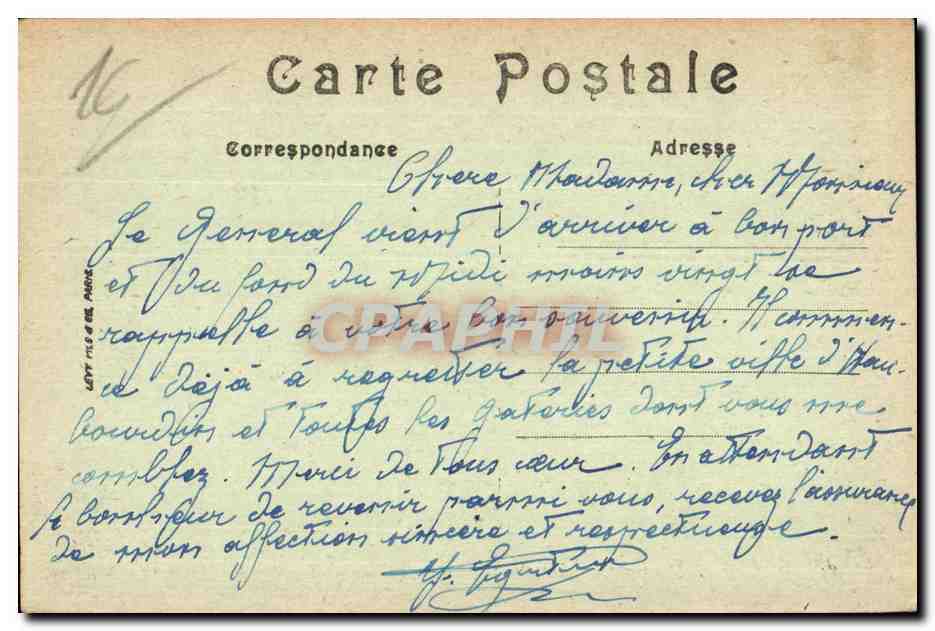 1€
Carte Postale
Correspondance Adresse
Chere Madame, cher Monsieur
Le General vient d'arriver à bon port
et du fond du Midi moins vingt se
rappelle à votre bon souvenir. Il commen-
ce déjà à regretter la petite ville d'Hau-
bourdin et toutes les gateries dont vous me
comblez. Merci de tous cœur. En attendant
le bonheur de revenir parmi vous, recevez l'assurance
de mon affection sincère et respectueuse.
LEVY FILS & CIE, PARIS
CPAPHIL